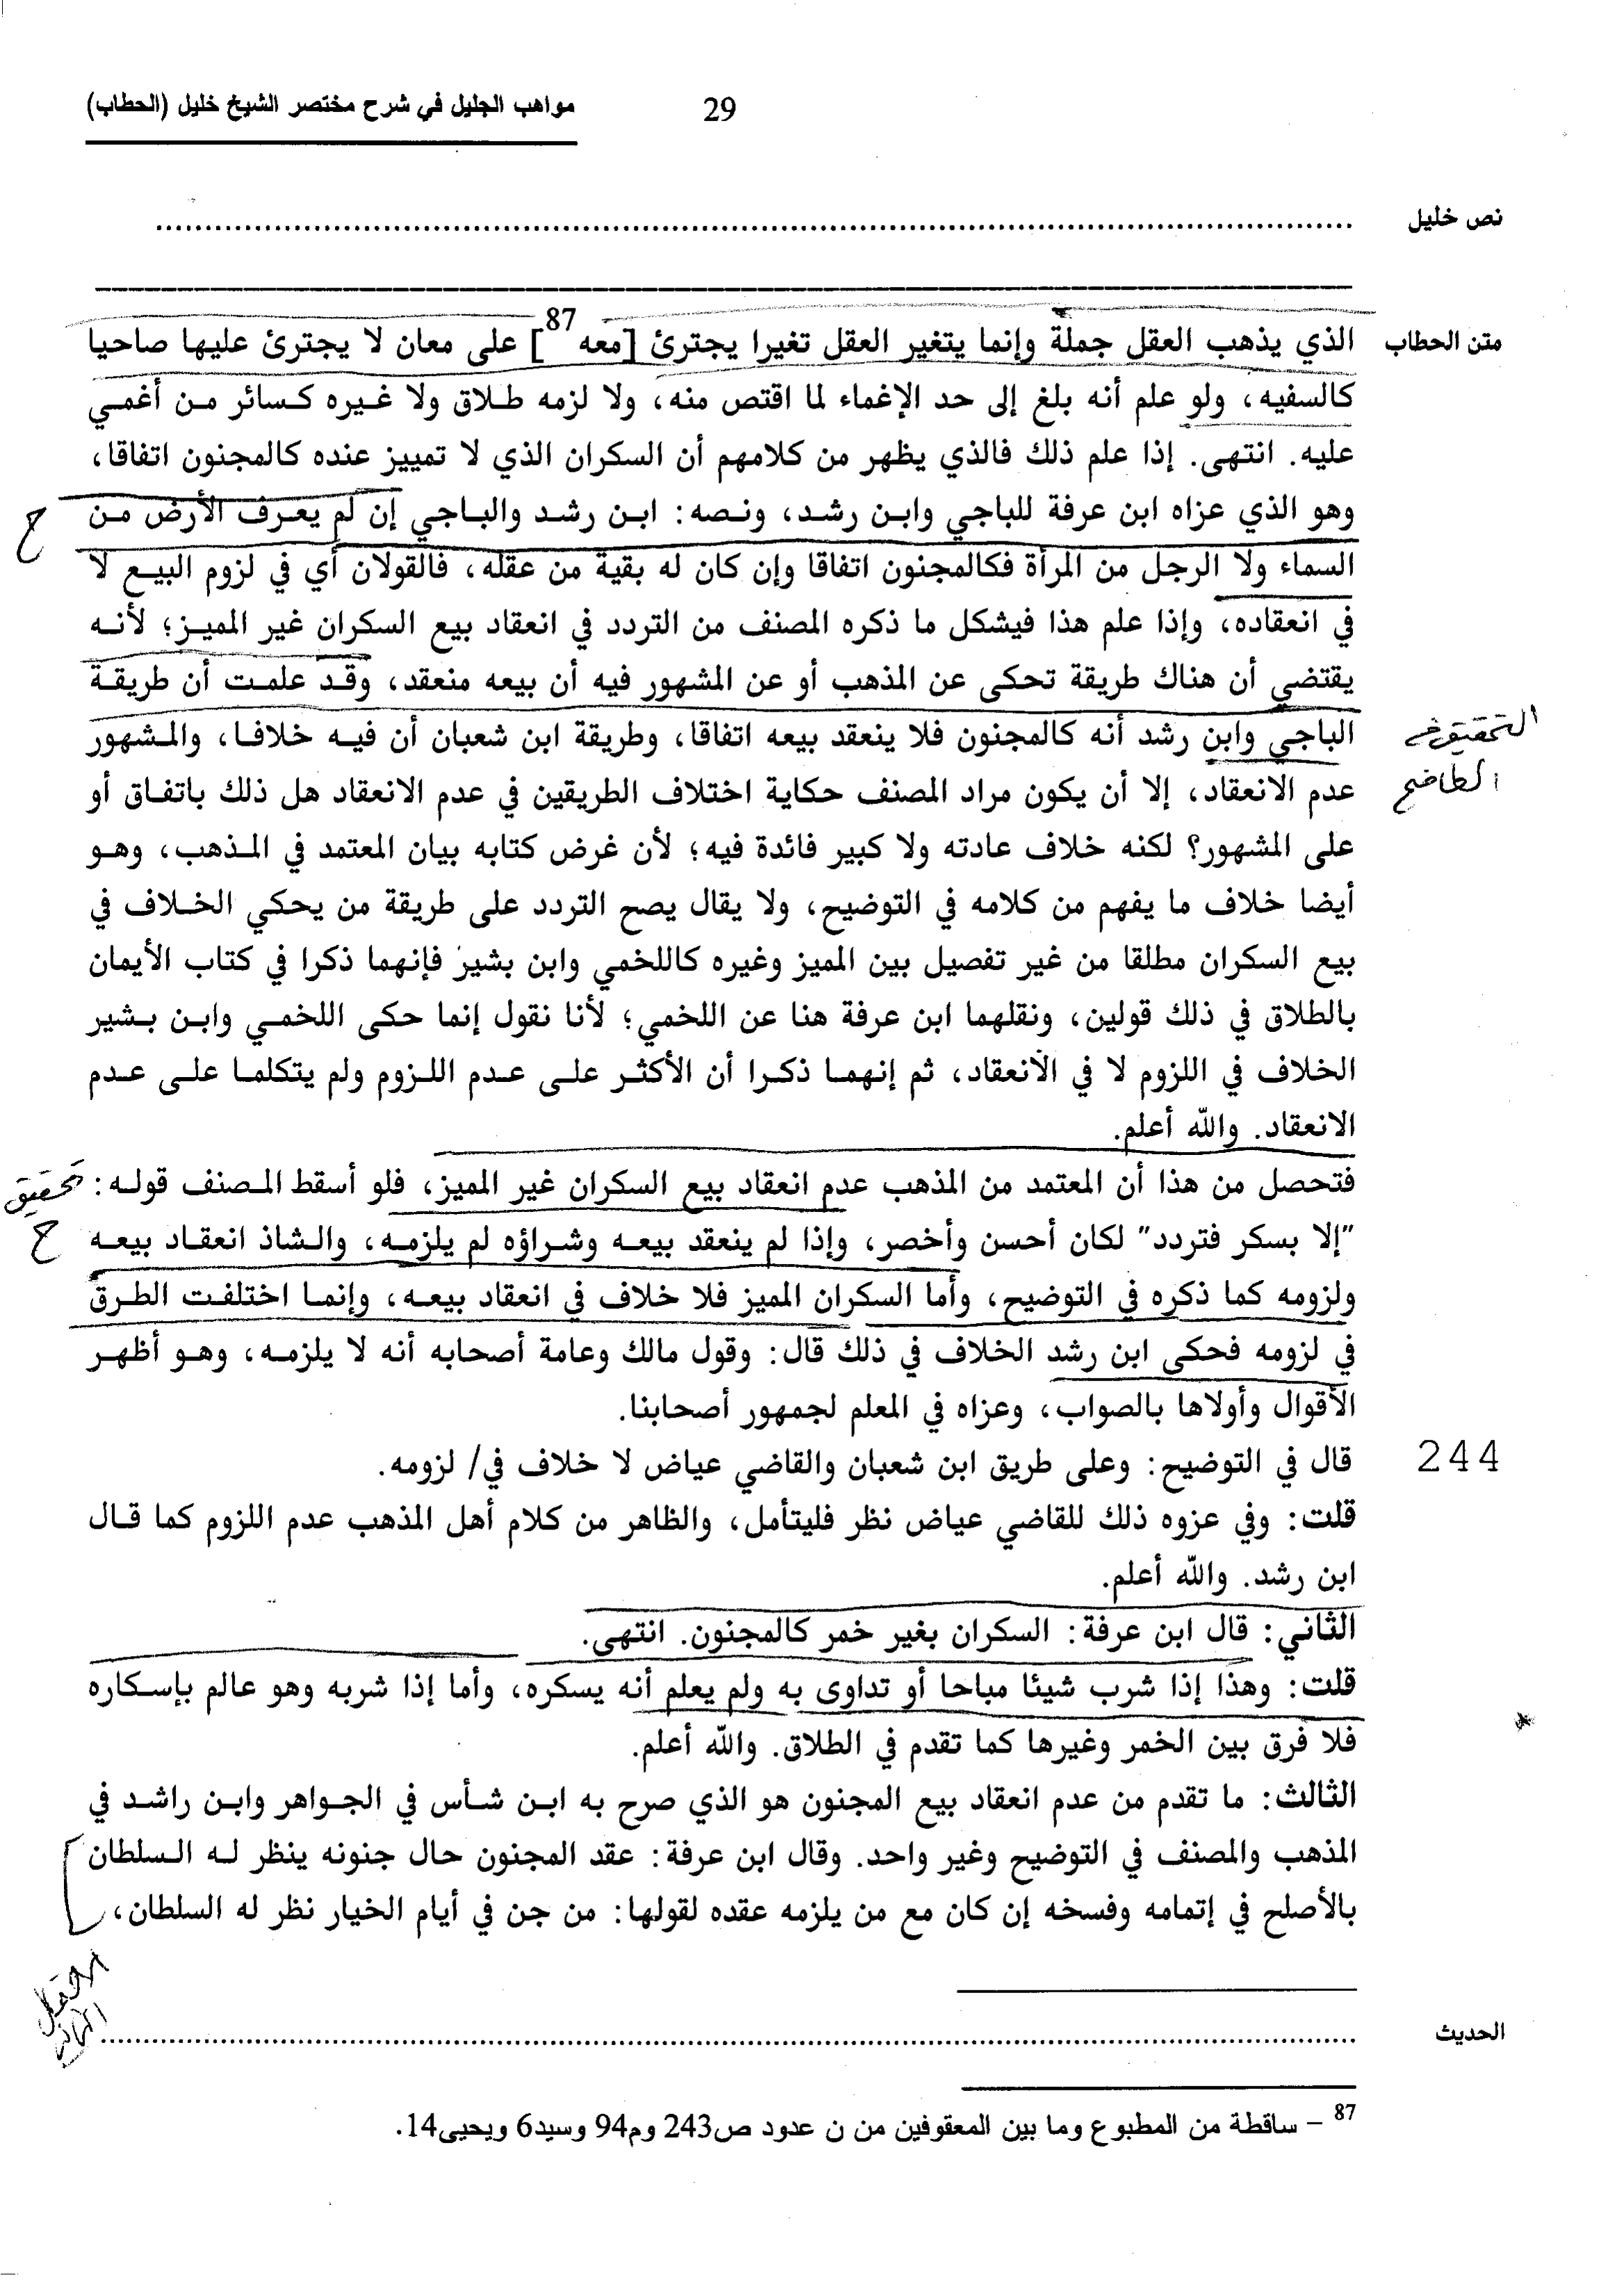 مواهب الجليل في شرح مختصر الشيخ خليل (الحطاب)
29
نص خليل
متن الحطاب
الذي يذهب العقل جملة وإنما يتغير العقل تغيرا يجترئ [معه 87] على معان لا يجترئ عليها صاحيا
كالسفيه، ولو علم أنه بلغ إلى حد الإغماء لما اقتص منه، ولا لزمه طلاق ولا غيره كسائر من أغمي
عليه. انتهى. إذا علم ذلك فالذي يظهر من كلامهم أن السكران الذي لا تمييز عنده كالمجنون اتفاقا،
وهو الذي عزاه ابن عرفة للباجي وابن رشد، ونصه: ابن رشد والباجي إن لم يعرف الأرض من
السماء ولا الرجل من المرأة فكالمجنون اتفاقا وإن كان له بقية من عقله، فالقولان أي في لزوم البيع لا
في انعقاده، وإذا علم هذا فيشكل ما ذكره المصنف من التردد في انعقاد بيع السكران غير المميز؛ لأنه
يقتضي أن هناك طريقة تحكى عن المذهب أو عن المشهور فيه أن بيعه منعقد، وقد علمت أن طريقة
الباجي وابن رشد أنه كالمجنون فلا ينعقد بيعه اتفاقا، وطريقة ابن شعبان أن فيه خلافا، والمشهور
عدم الانعقاد، إلا أن يكون مراد المصنف حكاية اختلاف الطريقين في عدم الانعقاد هل ذلك باتفاق أو
على المشهور؟ لكنه خلاف عادته ولا كبير فائدة فيه؛ لأن غرض كتابه بيان المعتمد في المذهب، وهو
أيضا خلاف ما يفهم من كلامه في التوضيح، ولا يقال يصح التردد على طريقة من يحكي الخلاف في
بيع السكران مطلقا من غير تفصيل بين المميز وغيره كاللخمي وابن بشير فإنهما ذكرا في كتاب الأيمان
بالطلاق في ذلك قولين، ونقلهما ابن عرفة هنا عن اللخمي؛ لأنا نقول إنما حكى اللخمي وابن بشير
الخلاف في اللزوم لا في الانعقاد، ثم إنهما ذكرا أن الأكثر على عدم اللزوم ولم يتكلما على عدم
الانعقاد. والله أعلم.
فتحصل من هذا أن المعتمد من المذهب عدم انعقاد بيع السكران غير المميز، فلو أسقط المصنف قوله:
"إلا بسكر فتردد" لكان أحسن وأخصر، وإذا لم ينعقد بيعه وشراؤه لم يلزمه، والشاذ انعقاد بيعه
ولزومه كما ذكره في التوضيح، وأما السكران المميز فلا خلاف في انعقاد بيعه، وإنما اختلفت الطرق
في لزومه فحكى ابن رشد الخلاف في ذلك قال: وقول مالك وعامة أصحابه أنه لا يلزمه، وهو أظهر
الأقوال وأولاها بالصواب، وعزاه في المعلم لجمهور أصحابنا.
قال في التوضيح: وعلى طريق ابن شعبان والقاضي عياض لا خلاف في/ لزومه.
244
قلت: وفي عزوه ذلك للقاضي عياض نظر فليتأمل، والظاهر من كلام أهل المذهب عدم اللزوم كما قال
ابن رشد. والله أعلم.
الثاني: قال ابن عرفة: السكران بغير خمر كالمجنون. انتهى.
قلت: وهذا إذا شرب شيئا مباحا أو تداوى به ولم يعلم أنه يسكره، وأما إذا شربه وهو عالم بإسكاره
فلا فرق بين الخمر وغيرها كما تقدم في الطلاق. والله أعلم.
الثالث: ما تقدم من عدم انعقاد بيع المجنون هو الذي صرح به ابن شأس في الجواهر وابن راشد في
المذهب والمصنف في التوضيح وغير واحد. وقال ابن عرفة: عقد المجنون حال جنونه ينظر له السلطان
بالأصلح في إتمامه وفسخه إن كان مع من يلزمه عقده لقولها: من جن في أيام الخيار نظر له السلطان،
الحديث
87 – ساقطة من المطبوع وما بين المعقوفين من ن عدود ص243 وم94 وسيد6 ويحيى14.
تحقيق
ح
ح